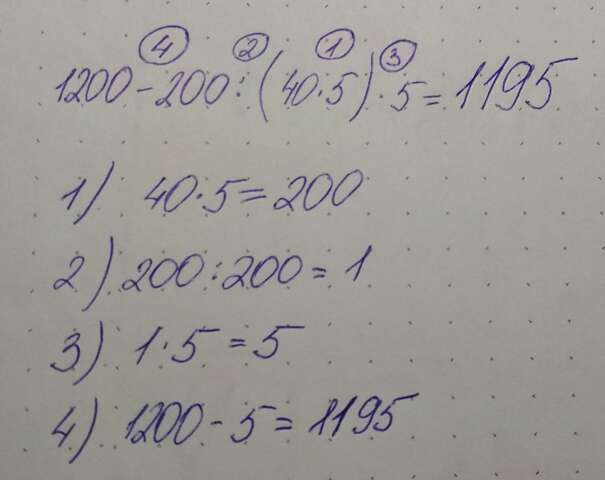 ④ ② ① ③
1200-200:(40·5)·5=1195
1) 40·5=200
2) 200:200=1
3) 1·5=5
4) 1200-5=1195